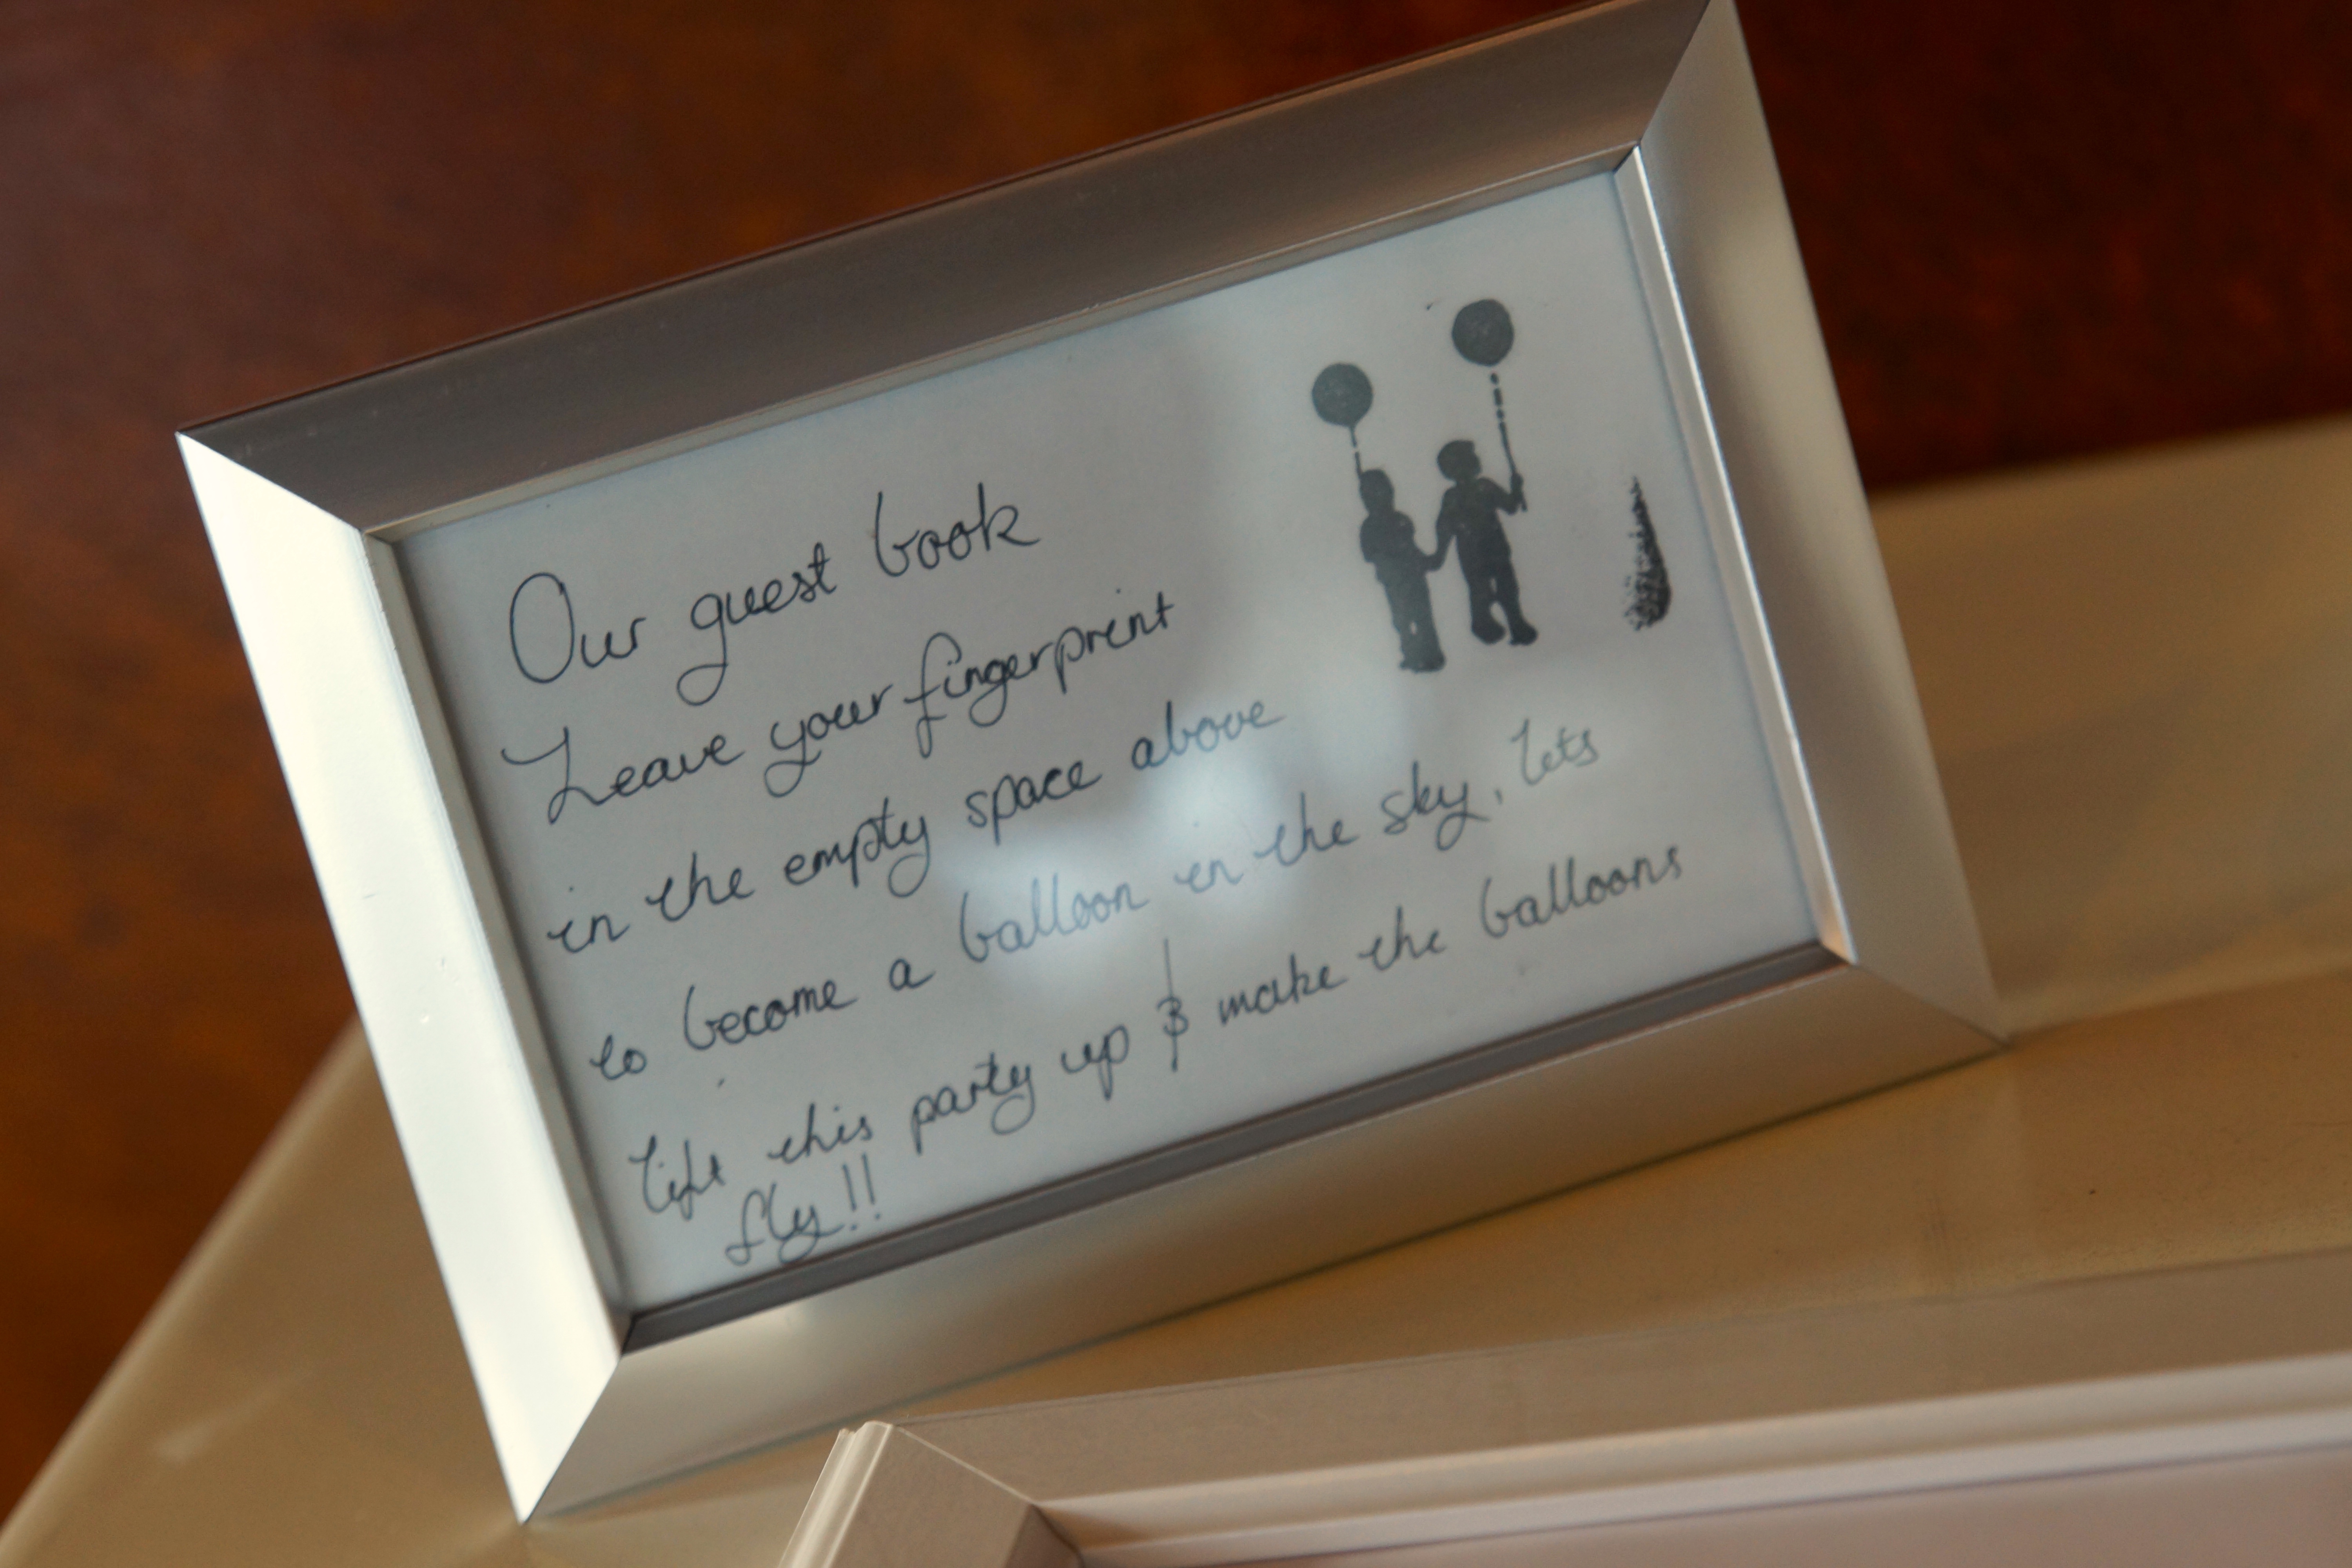 Our guest book
Leave your fingerprint
in the empty space above
to become a balloon in the sky, lets
lift this party up & make the balloons
fly!!